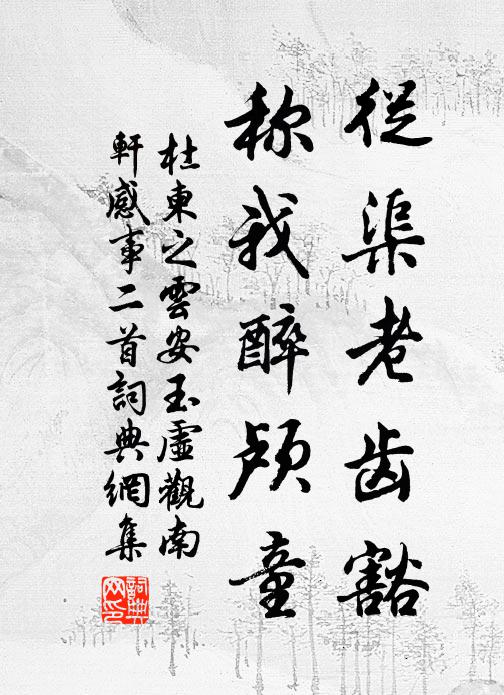 從渠老齿豁
称我醉颅童
杜東之雲安玉虛觀南
軒感事二首詞典網集